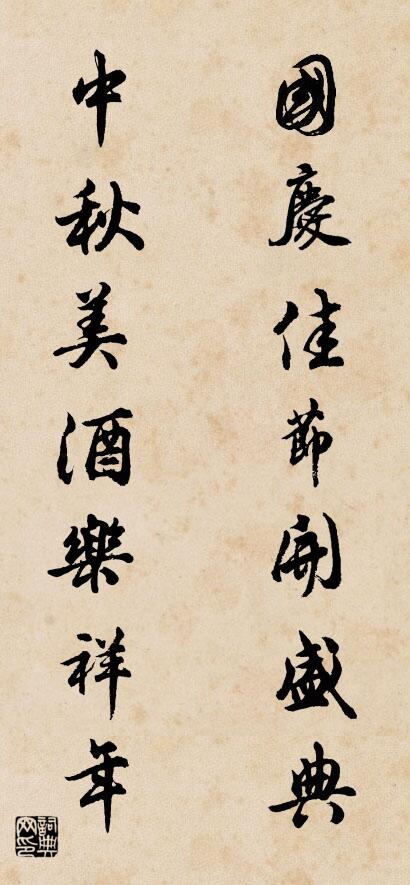 國慶佳節開盛典
中秋美酒樂祥年
詞典网印